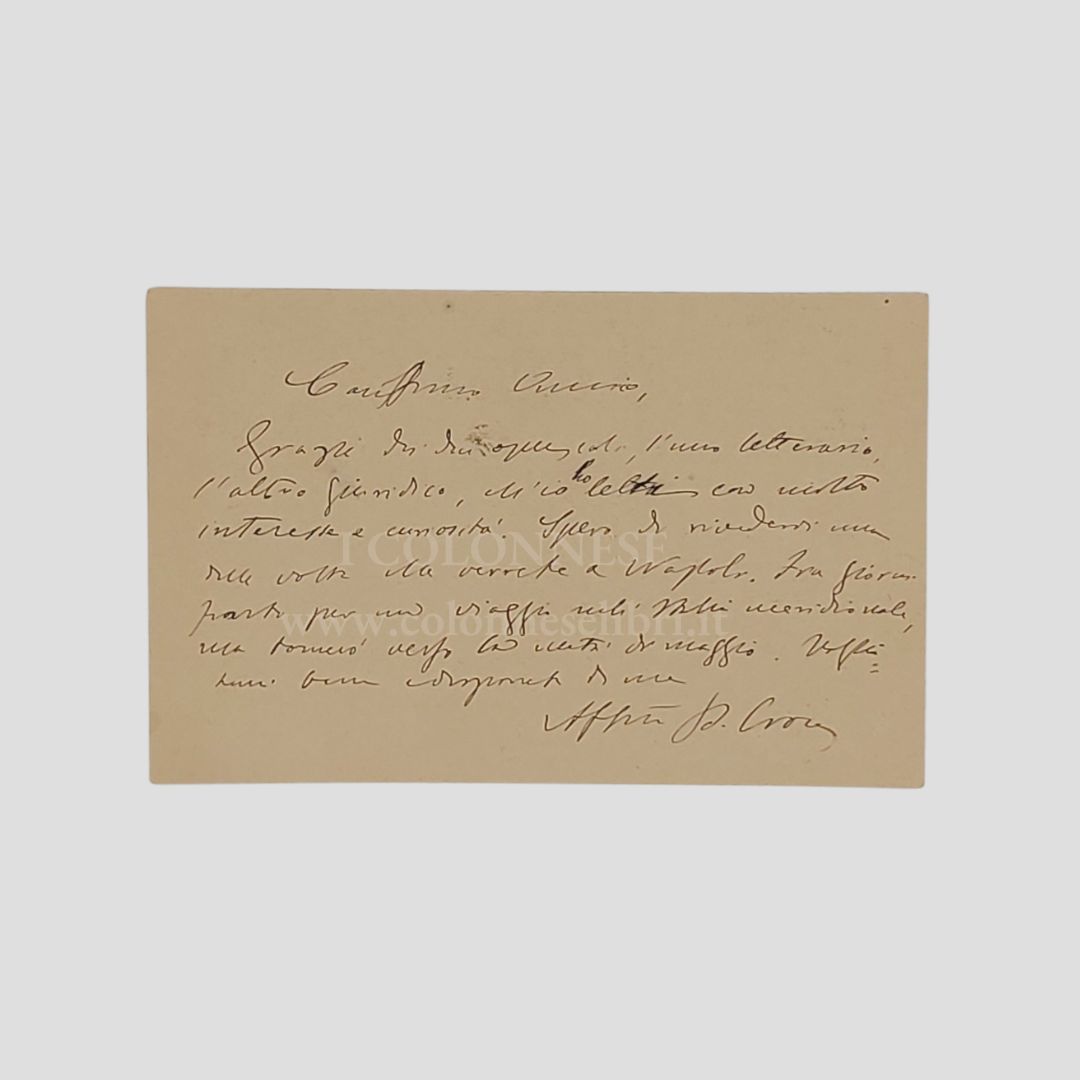 Carissimo Amico,
Grazie dei due opuscoli, l'uno letterario,
l'altro giuridico, ch'io ho letti con molto
interesse e curiosità. Spero di rivedervi una
delle volte che verrete a Napoli. Fra giorni
parto per un viaggio nell'Italia meridionale,
ma tornerò verso la metà di maggio. Voglia=
temi bene e disponete di me
Aff.mo B. Croce
I COLONNESE
www.colonneselibri.it